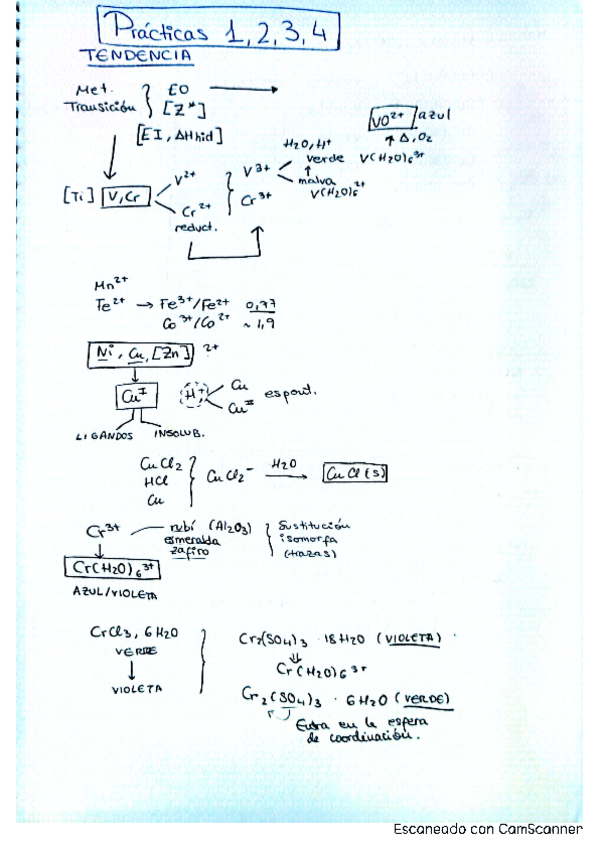 Prácticas 1, 2, 3, 4
TENDENCIA
Met. Transición } EO →
[Z*]
[EI, ΔHhid]
VO²⁺ azul
↑ Δ, O₂
H₂O, H⁺
verde V(H₂O)₆³⁺
malva V(H₂O)₆²⁺
[Ti] V, Cr
V²⁺
Cr²⁺
reduct.
V³⁺
Cr³⁺
Mn²⁺
Fe²⁺ → Fe³⁺/Fe²⁺ 0,77
Co³⁺/Co²⁺ ~ 1,9
Ni, Cu, [Zn] ²⁺
Cuᴵ
H⁺ Cu
Cuᴵᴵ espont.
LIGANDOS INSOLUB.
CuCl₂
HCl
Cu
CuCl₂⁻ H₂O → CuCl(s)
Cr³⁺ — rubí (Al₂O₃)
esmeralda
zafiro
Sustitución
isomorfa
(trazas)
Cr(H₂O)₆³⁺
AZUL/VIOLETA
CrCl₃, 6H₂O
VERDE
↓
VIOLETA
Cr₂(SO₄)₃ · 18H₂O (VIOLETA)
⇓
Cr(H₂O)₆³⁺
Cr₂(SO₄)₃ · 6H₂O (VERDE)
Entra en la esfera
de coordinación.
Escaneado con CamScanner